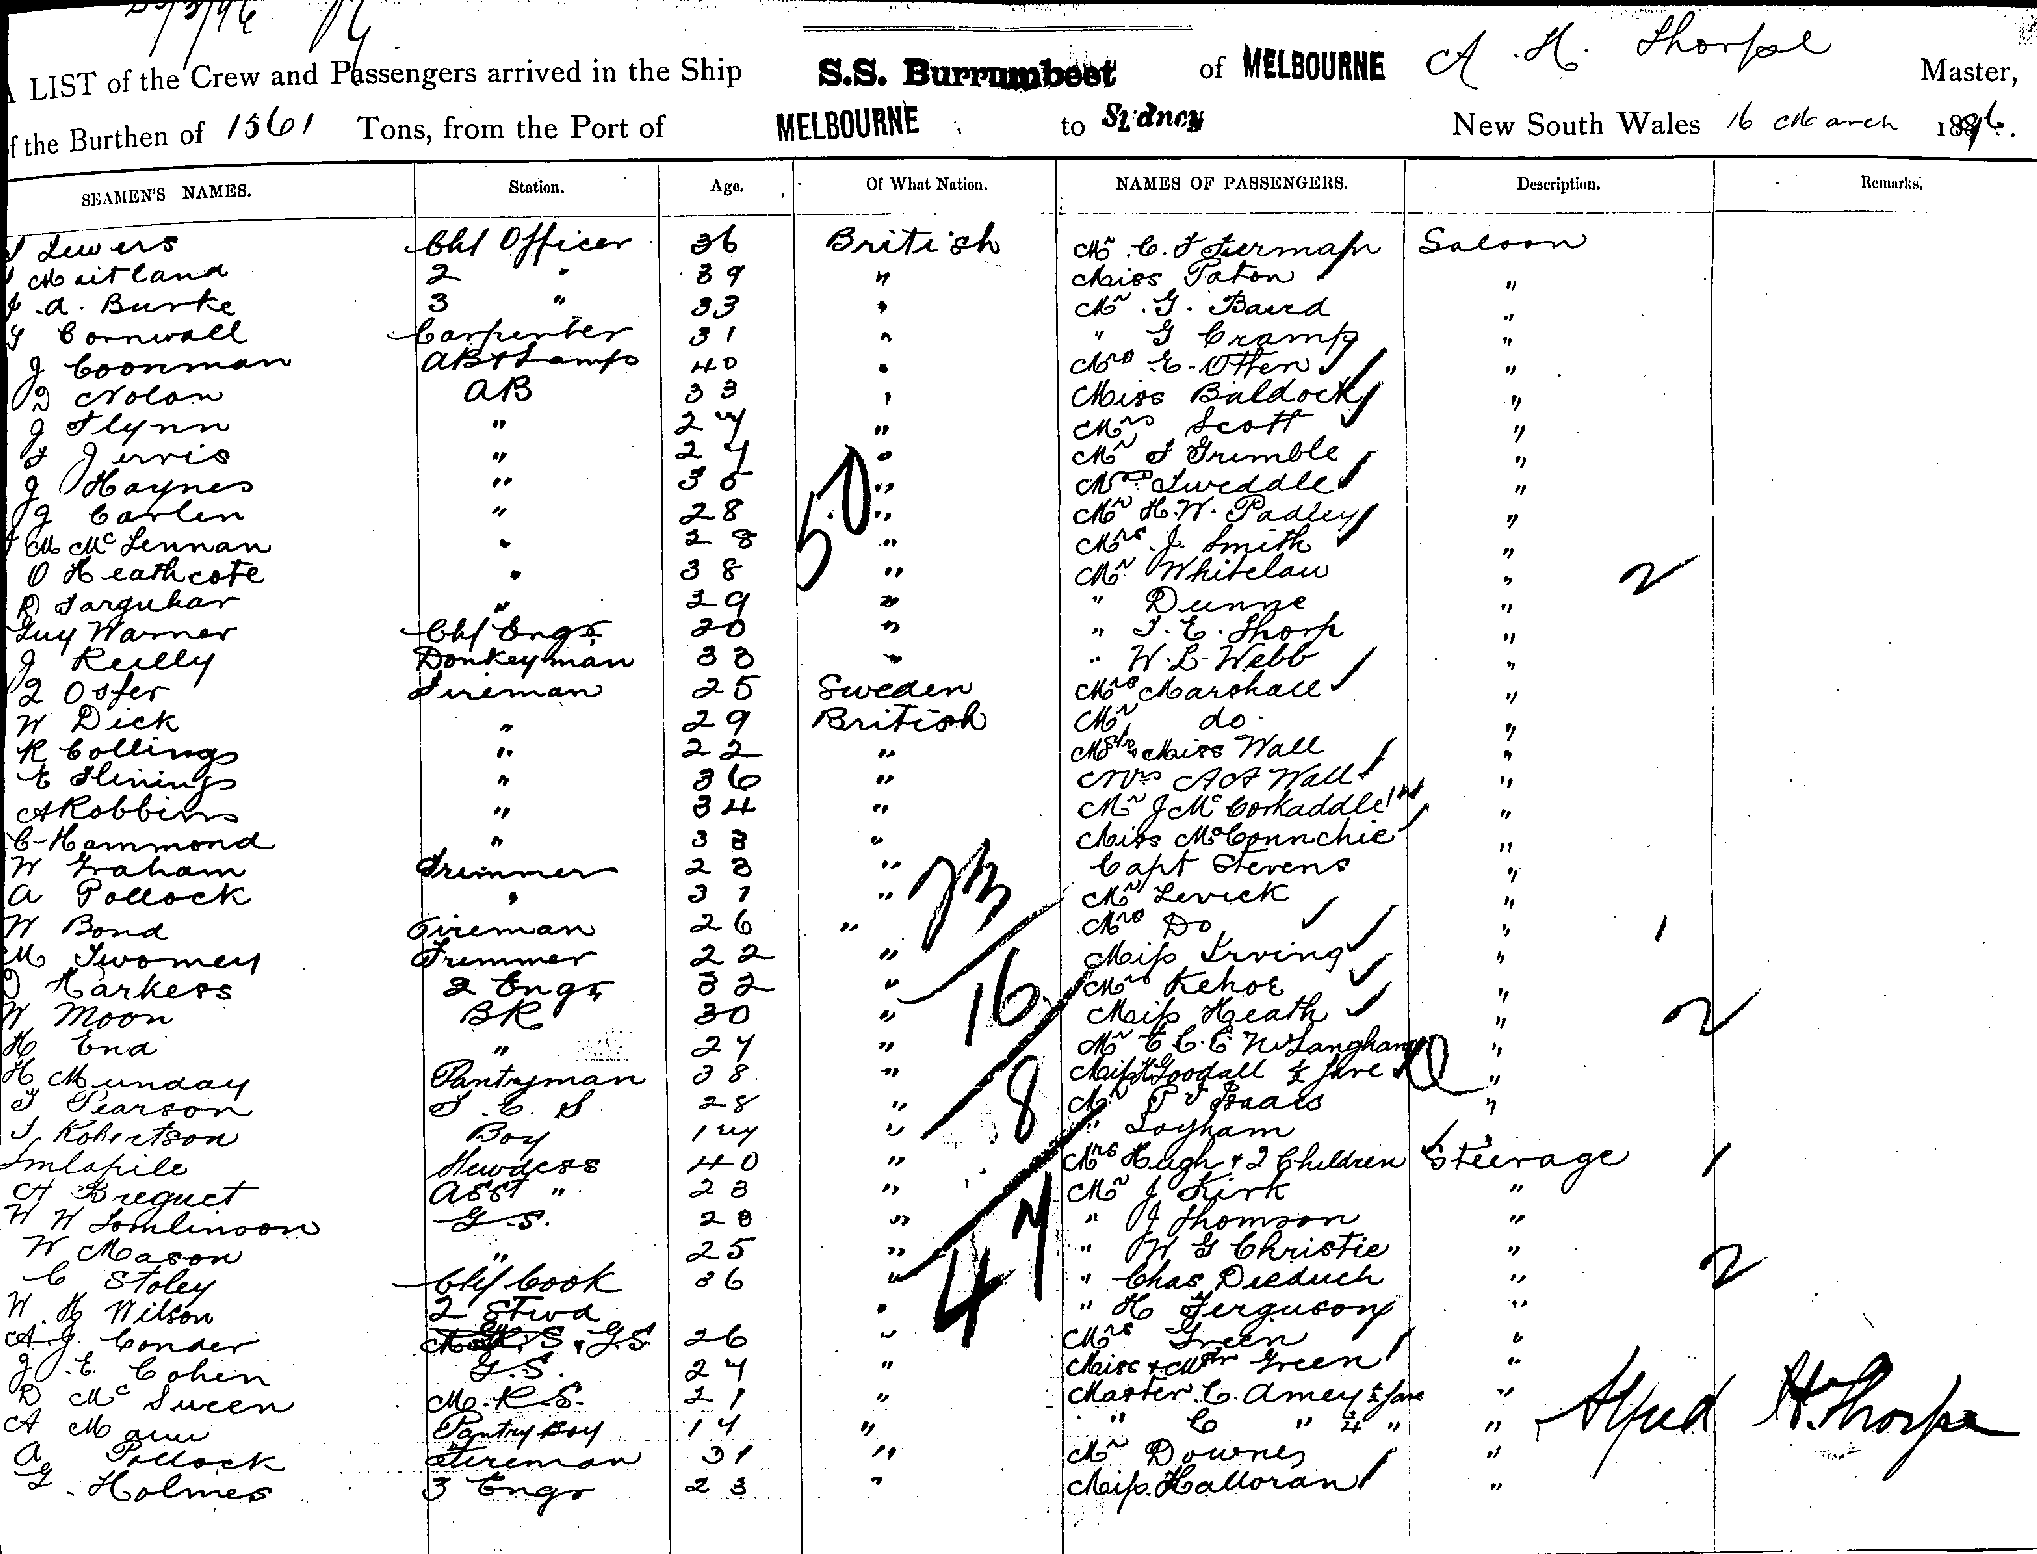 A. H. Thorpe
A LIST of the Crew and Passengers arrived in the Ship S.S. Burrumbeet of MELBOURNE Master,
of the Burthen of 1561 Tons, from the Port of MELBOURNE to Sydney New South Wales 16 March 1896.
SEAMEN'S NAMES. Station. Age. Of What Nation. NAMES OF PASSENGERS. Description. Remarks.
Lewers Chf Officer 36 British Mr C. F Furman Saloon
Maitland 2 " 39 " Miss Paton "
A. Burke 3 " 33 " Mr G. Baird "
Cornwall Carpenter 31 " " G Cramp "
J Coonman AB & Lamps 40 " Mrs E. Otten "
Nolan AB 33 " Miss Baldock "
J Flynn " 27 " Mrs Scott "
Jervis " 27 " Mr T Grimble "
J Haynes " 36 " Mrs Tweddle "
J Carlin " 28 " Mr H. W. Padley "
M McLennan " 28 " Mrs J. Smith "
O Heathcote " 38 " Mr Whitelaw " 2
D Farquhar " 29 " " Dunne "
Guy Warner Chf Engr 20 " " T. E. Thorp "
J Reilly Donkeyman 33 " " W. L. Webb "
Oster Fireman 25 Sweden Mrs Marshall "
W Dick " 29 British Mr do. "
R Collings " 22 " Miss Wall "
E " 36 " Mrs A A Wall "
A Robbins " 34 " Mr J McCorkaddle "
C Hammond " 33 " Miss McConnchie "
W Graham Trimmer 23 " Capt Stevens "
A Pollock " 31 " Mr Levick "
W Bond Fireman 26 " Mrs Do " 1
M Twomey Trimmer 22 " Miss Irving "
Harkess 2 Engr 32 " Mrs Kehoe "
W Moon BR 30 " Miss Heath " 2
H End " 27 " Mr E. C. E Langham "
H Munday Pantryman 38 " Miss Goodall ½ fare "
T Pearson S. C. S 28 " Mr P J Isaacs "
Robertson Boy 17 " " "
40 " Mrs Hugh & 2 Children Steerage 1
A Breguet Asst " 23 " Mr J Kirk "
W W Tomlinson G. S. 28 " " J Thomson "
W Mason " 25 " " W G Christie "
C Stoley Chf Cook 36 " " Chas "  2
W. H Wilson 2 Stwd " " H Ferguson "
A. J. Conder S & G.S 26 " Mrs Green "
J. E. Cohen G. S. 27 " Miss & Mstr Green "
D McSween M. R. S. 21 " Master C. Amey ½ fare "
A Mann Pantry Boy 14 " " C " ½ " "
A Pollock Fireman 31 " Mr Downes "
G. Holmes 3 Engr 23 " Miss Halloran "
50
23
16
8
47
Alfred H. Thorpe